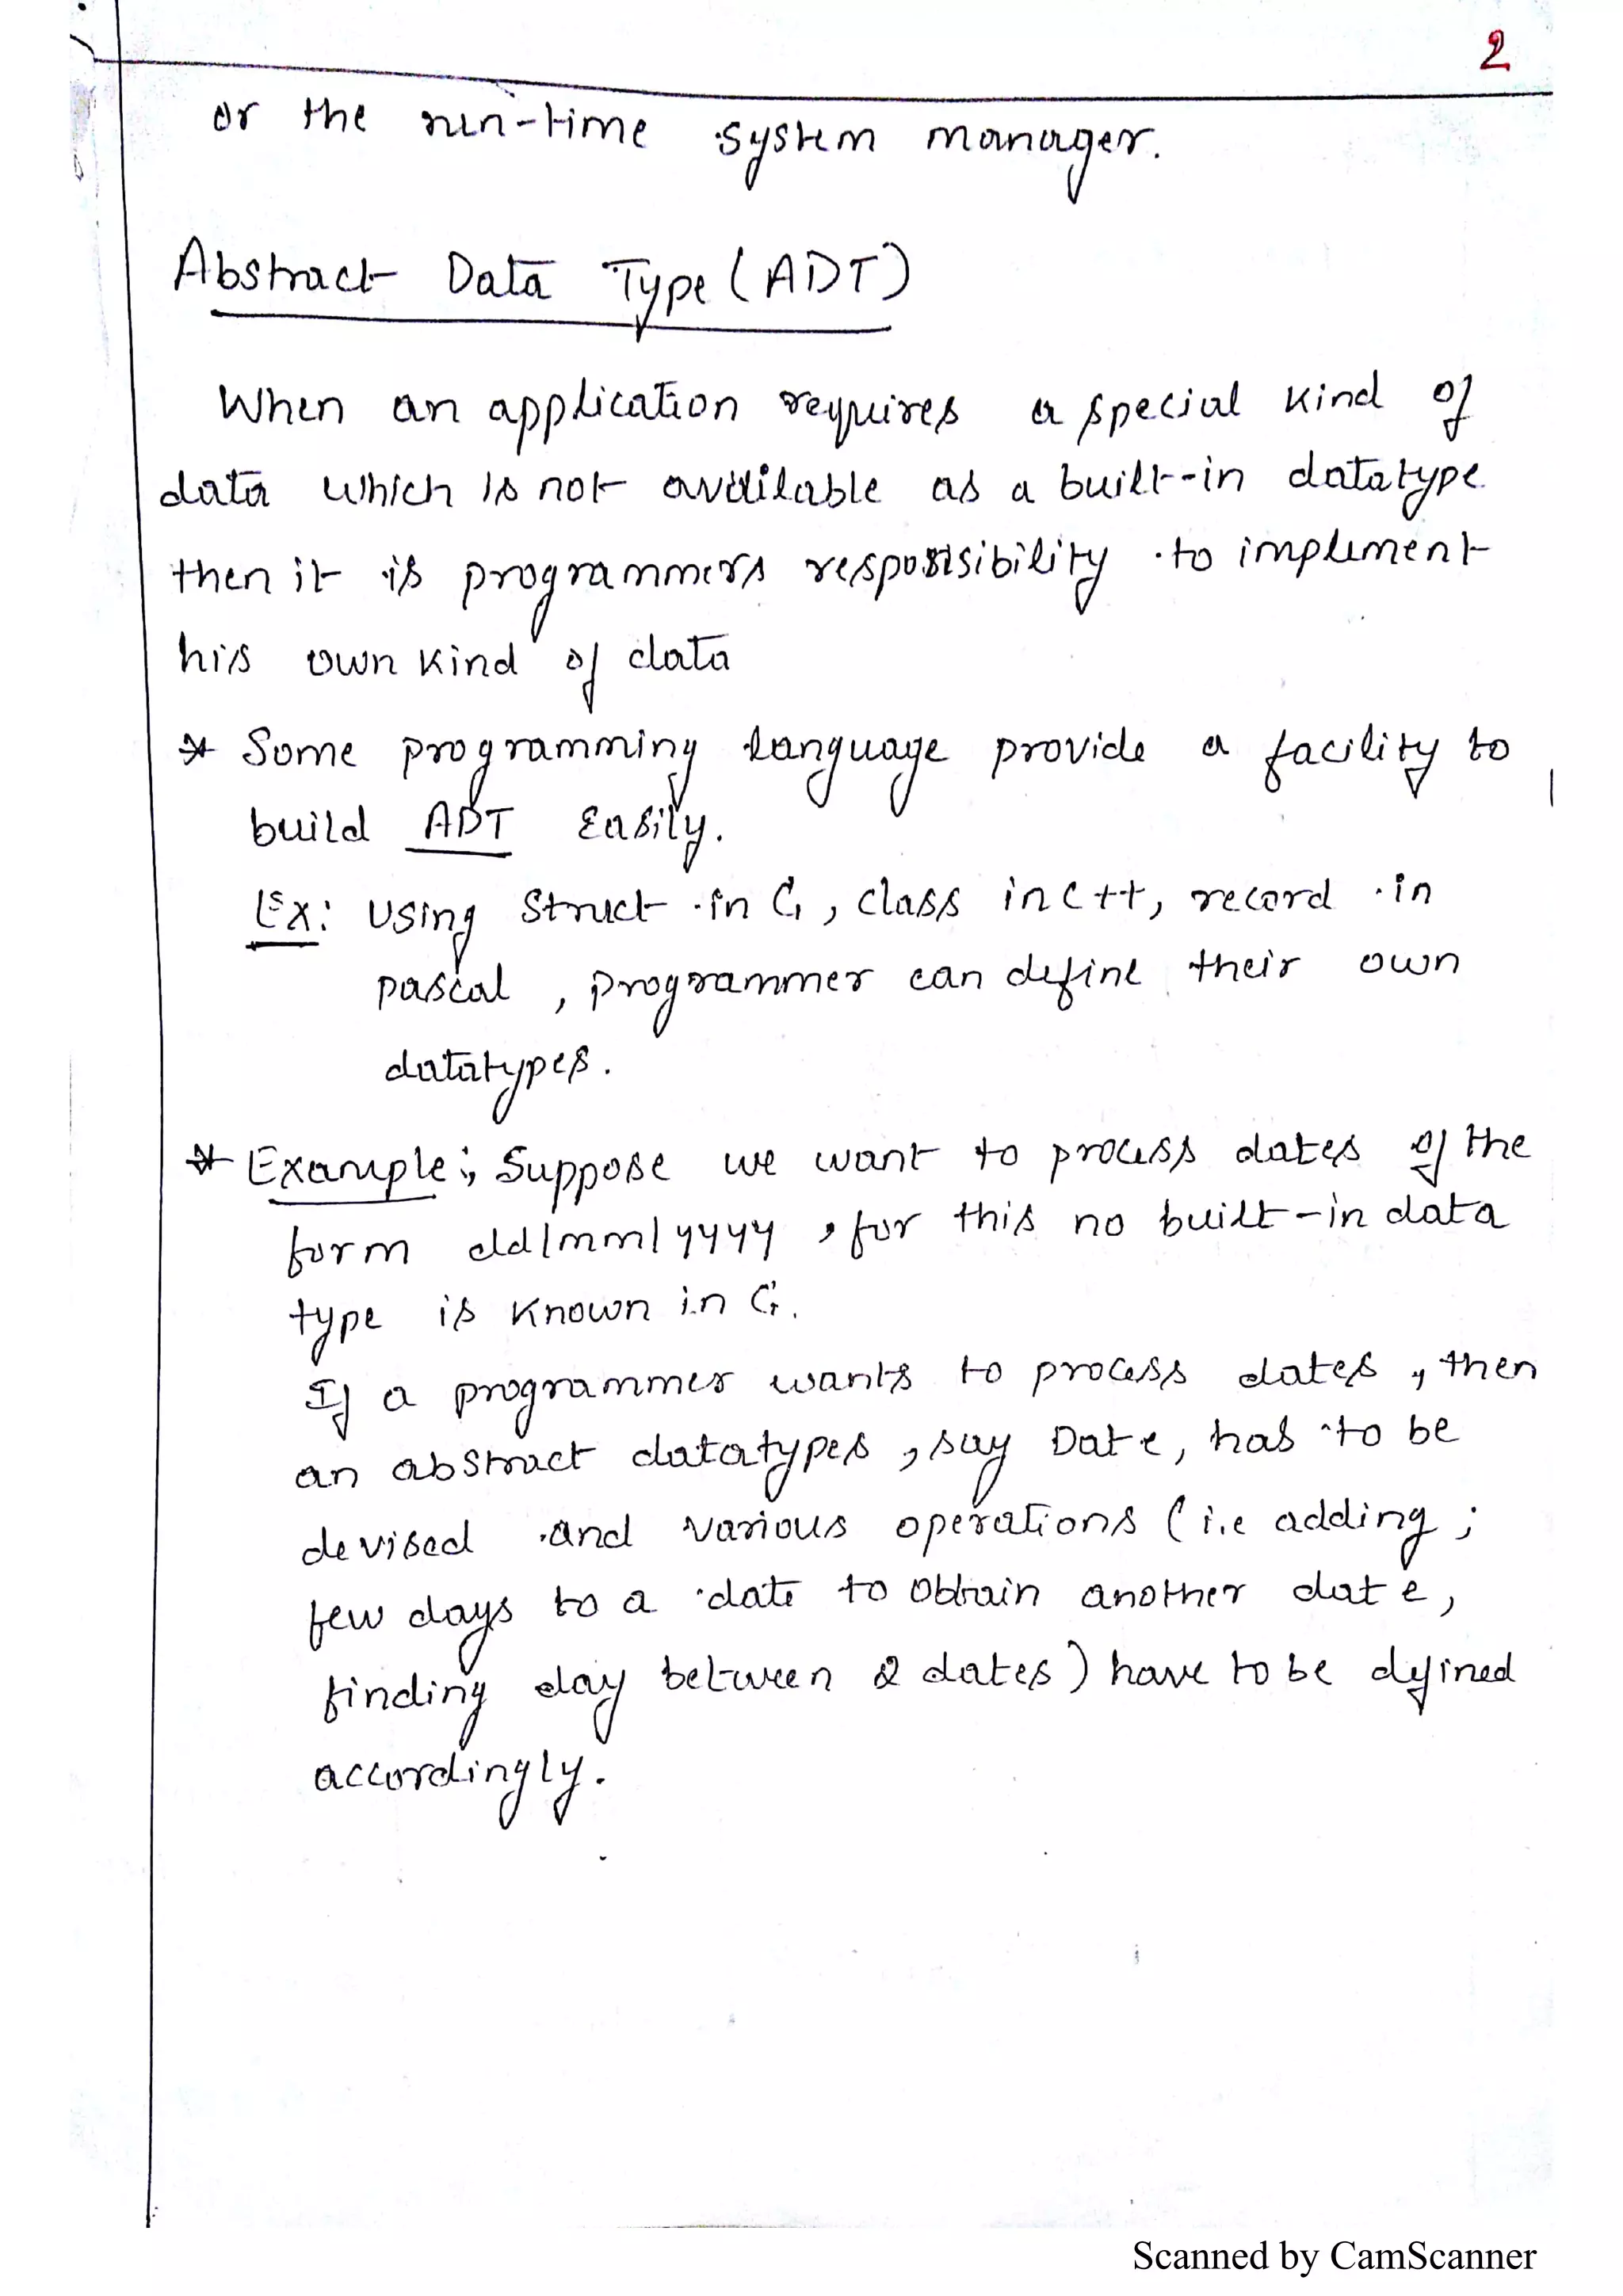 2
or the run-time system manager.
Abstract Data Type (ADT)
When an application requires a special kind of
data which is not available as a built-in datatype
then it is programmers resposisibility to implement
his own kind of data
* Some programming language provide a facility to
build ADT Easily.
Ex: Using Struct in C, class in C++, record in
pascal, programmer can define their own
datatypes.
* Example: Suppose we want to process dates of the
form dd/mm/yyyy, for this no built-in data
type is known in C.
If a programmer wants to process dates, then
an abstract datatypes, say Date, has to be
devised and various operations (i.e adding
few days to a date to obtain another date,
finding day between 2 dates) have to be defined
accordingly.
Scanned by CamScanner